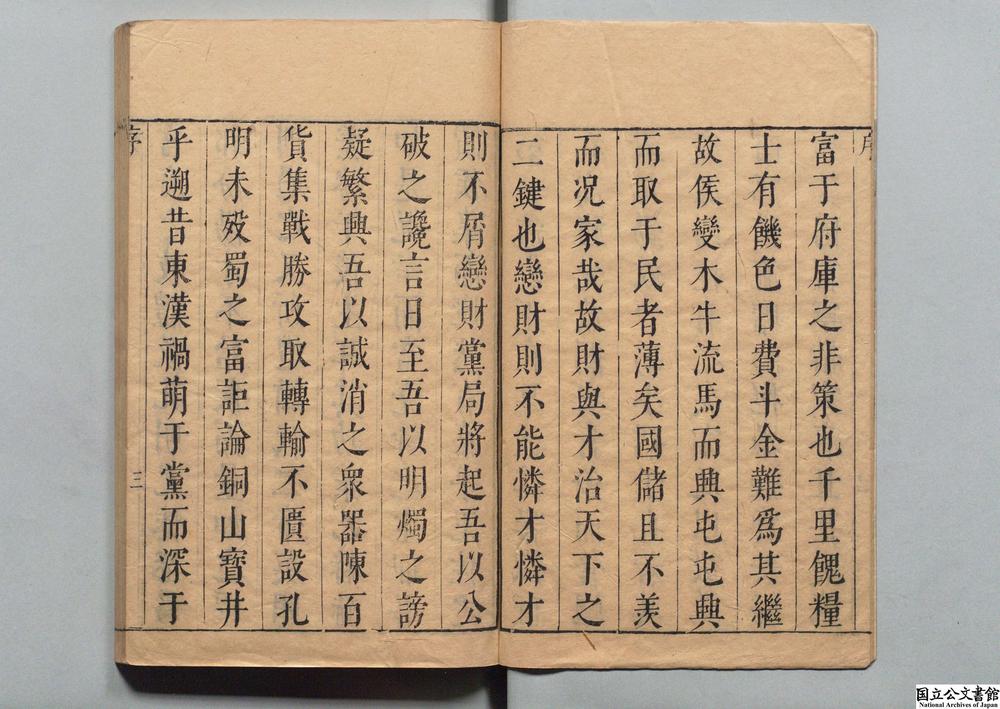 序
富于府庫之非策也千里餽糧
士有饑色日費斗金難爲其繼
故侯變木牛流馬而興屯屯興
而取于民者薄矣國儲且不羡
而况家哉故財與才治天下之
二鍵也戀財則不能憐才憐才
則不屑戀財黨局將起吾以公
破之讒言日至吾以明燭之謗
疑繁興吾以誠消之衆器陳百
貨集戰勝攻取轉輸不匱設孔
明未歿蜀之富詎論銅山寶井
乎遡昔東漢禍萌于黨而深于
序
三
国立公文書館
National Archives of Japan